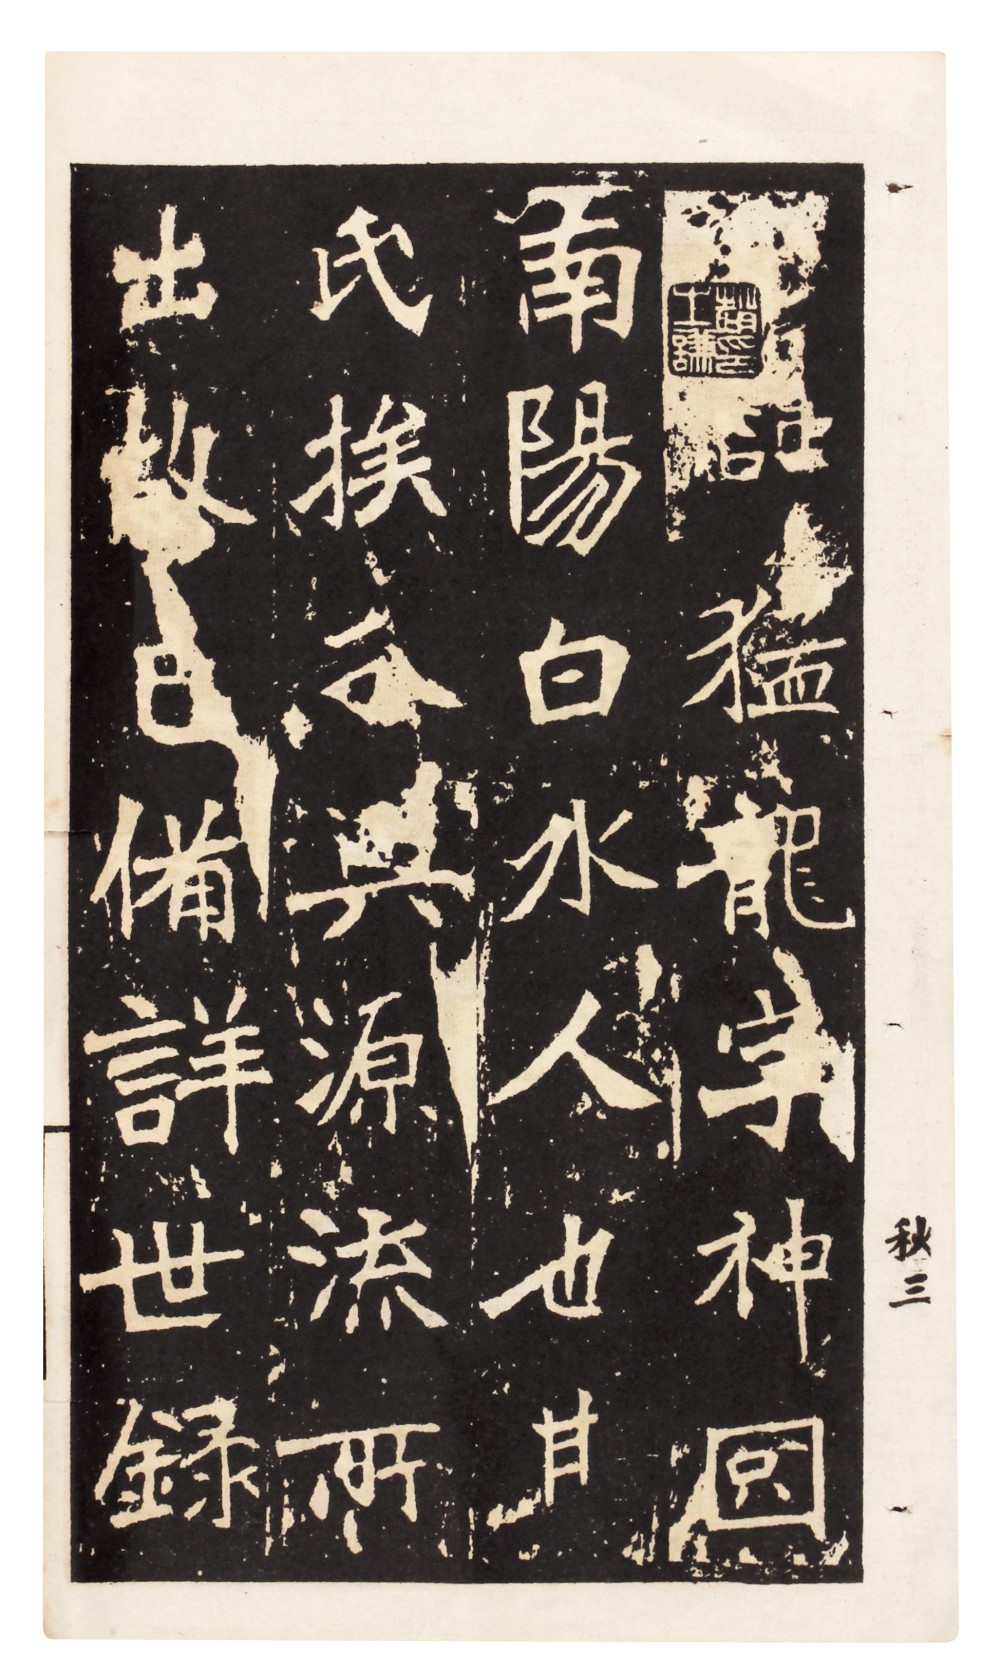 諱猛龍字神冏
南陽白水人也其
氏族分興源流所
出故已備詳世録
秋三